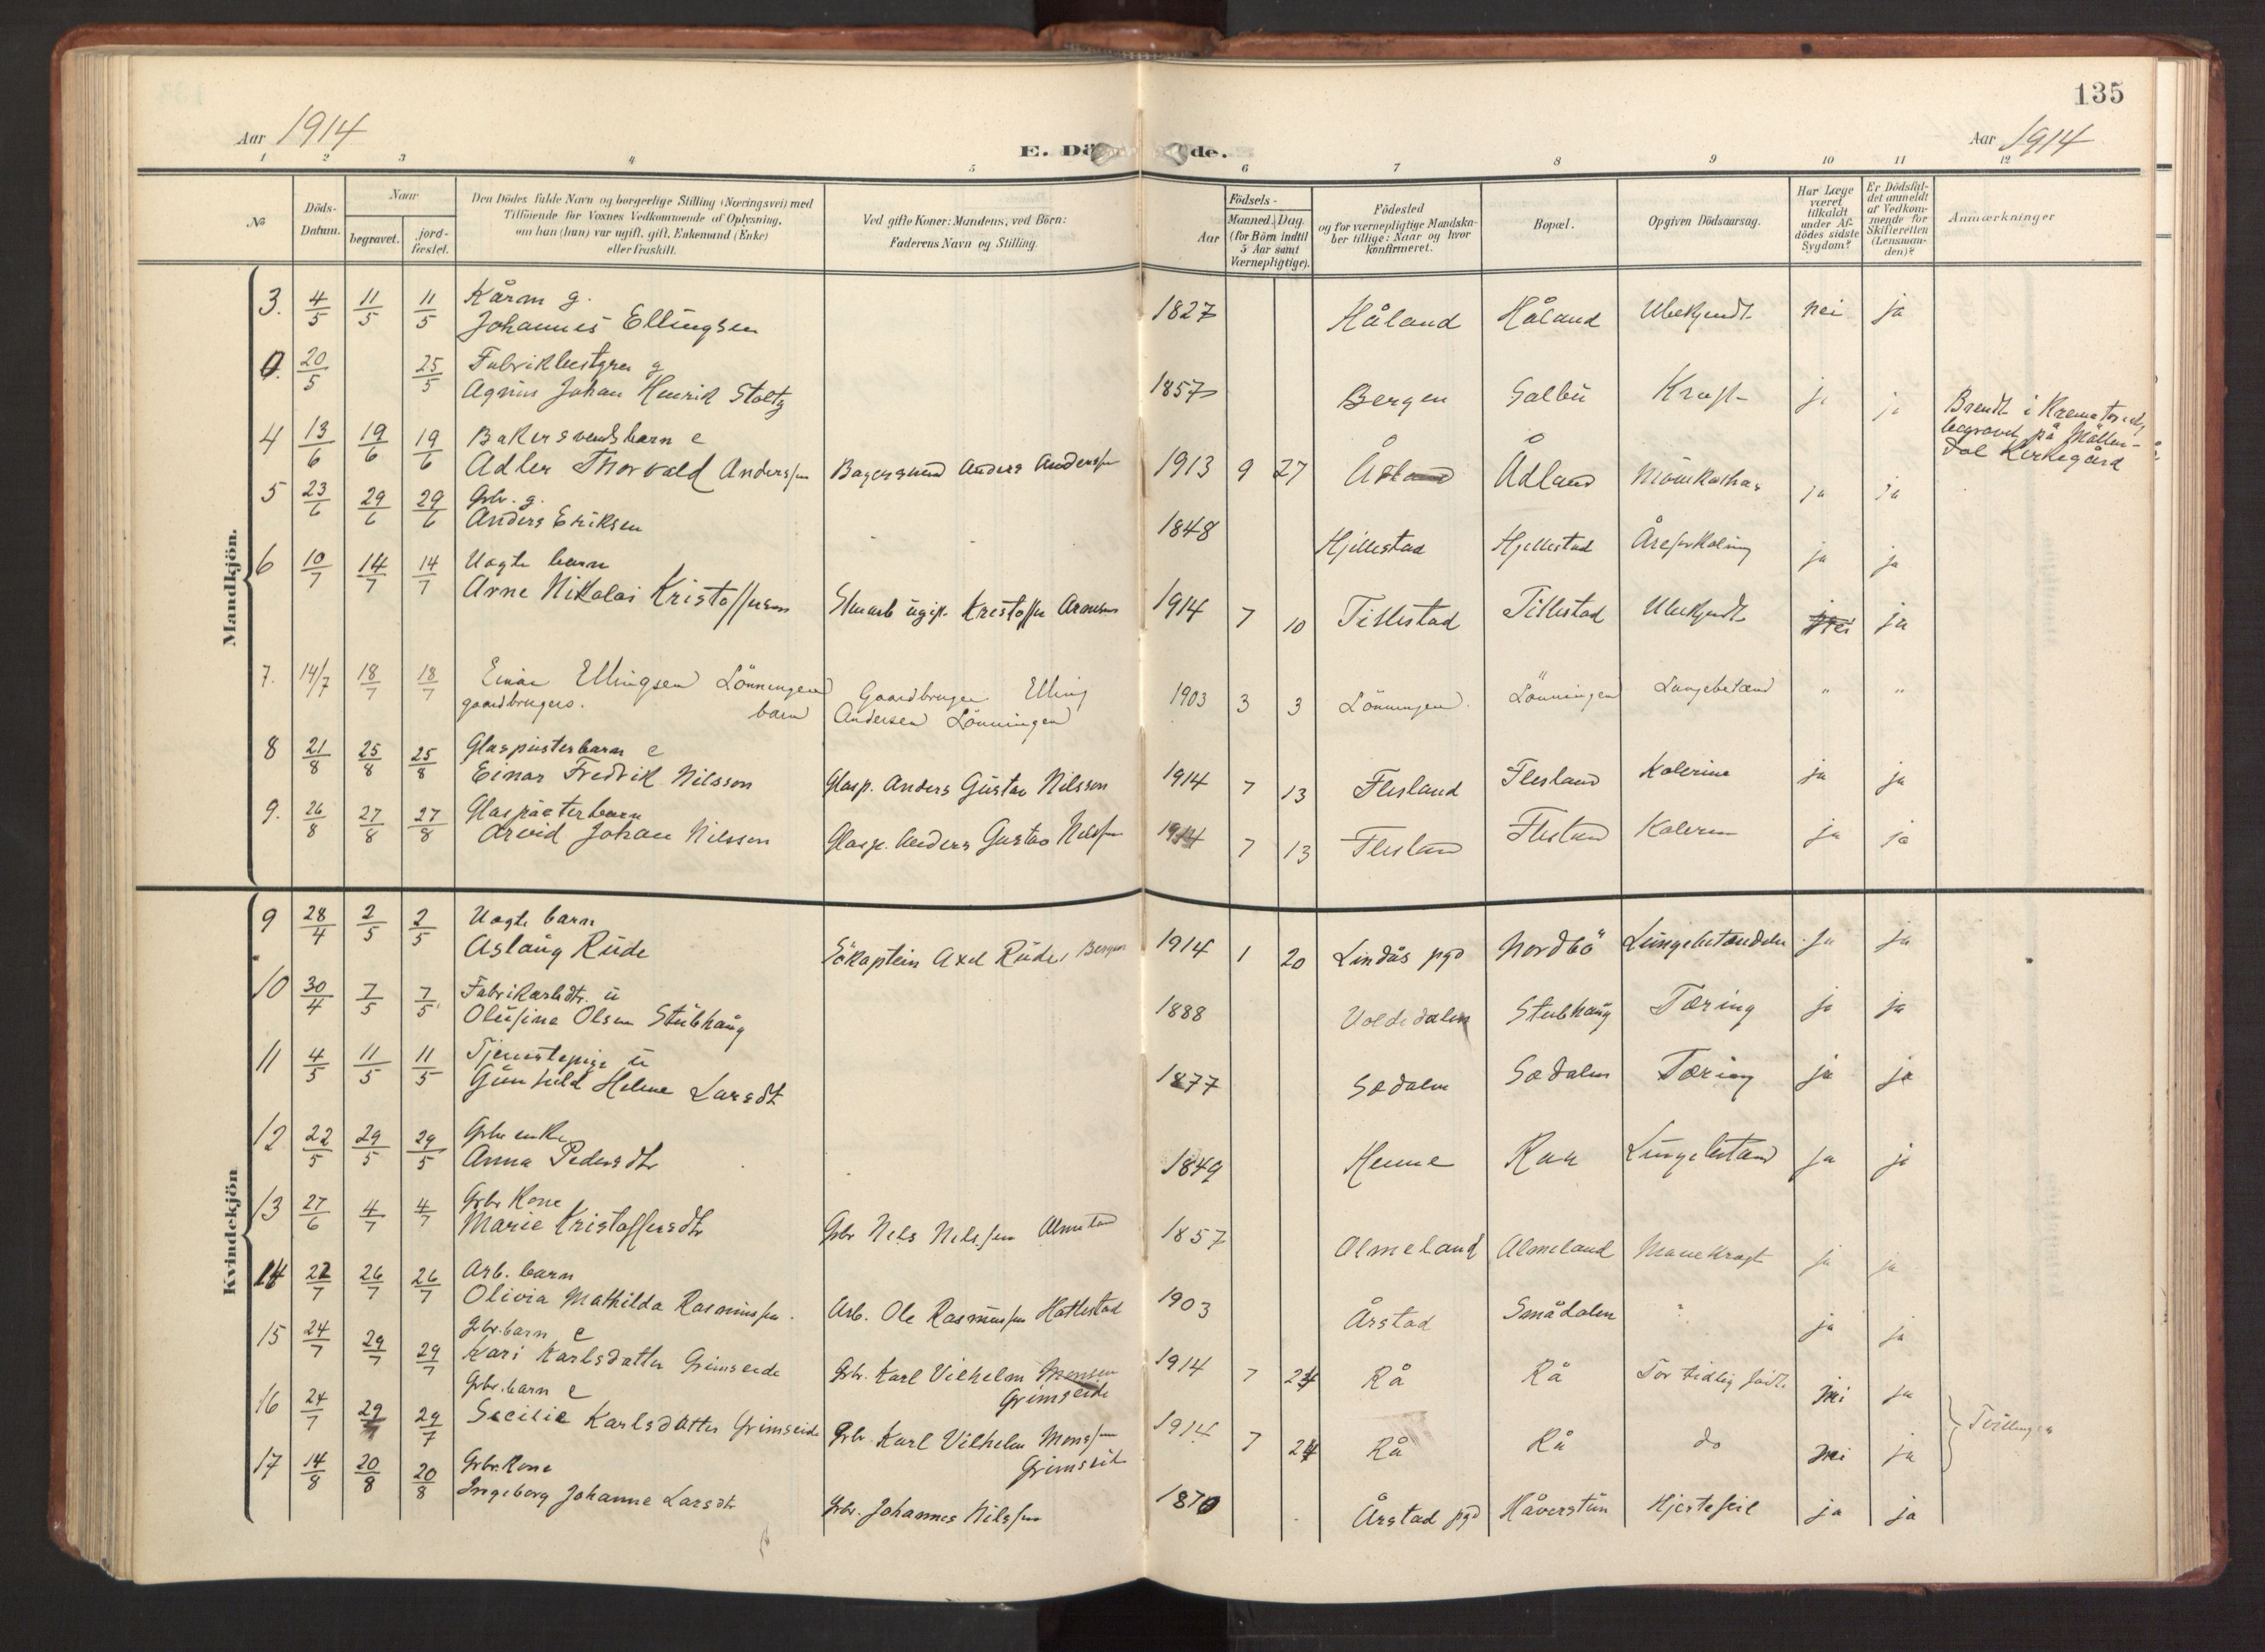 135
Aar 1914
Aar 1914
E. Dö de.
1 2 3 4 5 6 7 8 9 10 11 12
No
Döds-Datum.
Naar
begravet.
jord-fæstet.
Den Dödes fulde Navn og borgerlige Stilling (Næringsvei) med
Tilföiende for Voxnes Vedkommende af Oplysning,
om han (hun) var ugift, gift, Enkemand (Enke)
eller fraskilt.
Ved gifte Koner: Mandens, ved Börn:
Faderens Navn og Stilling.
Födsels-
Aar
Maaned. Dag.
(for Börn indtil
5 Aar samt
Værnepligtige).
Födested
og for værnepligtige Mandska-
ber tillige: Naar og hvor
konfirmeret.
Bopæl.
Opgiven Dödsaarsag.
Har Læge
været
tilkaldt
under Af-
dödes sidste
Sygdom?
Er Dödsfal-
det anmeldt
af Vedkom-
mende for
Skifteretten
(Lensman-
den)?
Anmærkninger
Mandkjön.
3. 4/5 11/5 11/5 Kårm g.
Johannes Ellingsen 1827 Håland Håland Ubekjendt nei ja
20/5 25/5 Fabrikbestyrer g
Johan Henrik Stoltz 1857 Bergen Kræft ja ja
Brendt i Krematoriet,
begravet på Möllen-
dal Kirkegård
4 13/6 19/6 19/6 Bakersvendsbarn e
Adler Thorvald Anderssen Bagersvend Anders Anderssen 1913 9 27 Ådland ja ja
5 23/6 29/6 29/6 Gbr. g.
Anders Eriksen 1848 Hjellestad Hjellestad Åreforkalkning ja ja
6 10/7 14/7 14/7 Uægte barn
Arne Nikolai Kristoffersen ugift Kristoffer 1914 7 10 Tillestad Tillestad Ubekjendt nei ja
7. 14/7 18/7 18/7 Einar Ellingsen Lönningen
gaardbrugers. barn
Gaardbruger Elling
Andersen Lönningen 1903 3 3 Lönningen Lönningen Lungebetænd " "
8 21/8 25/8 25/8 Glaspusterbarn e
Einar Fredrik Nilsson Glasp. Anders Gustav Nilsson 1914 7 13 Flesland Flesland Kolerine ja ja
9. 26/8 27/8 27/8 Glaspusterbarn
Arvid Johan Nilsson Glasp. Anders Gustav Nilsson 1914 7 13 Flesland Flesland Kolerin ja ja
Kvindekjön
9 28/4 2/5 2/5 Uægte barn
Aslaug Rude Sökaptein Axel Rude, Bergen 1914 1 20 Lindås pgd Nordbö Lungebetændelse ja ja
10 30/4 7/5 7/5 Fabrikarbdtr. u
Olufine Olsen Stubhaug 1888 Stubhaug Tæring ja ja
11 4/5 11/5 11/5 Tjenestepige u
Gunhild Helene Larsdt 1877 Sædalen Sædalen Tæring ja ja
12 22/5 29/5 29/5 Gbr enke
Anna Pedersdtr 1849 Henne Rau Lungebetænd ja ja
13 27/6 4/7 4/7 Gbr Kone
Marie Kristoffersdtr Gbr Nels Nelssen 1857 Almeland Almeland Mavekræft ja ja
14 22/7 26/7 26/7 Arb. barn
Olivia Mathilda Rasmussen. Arb. Ole Rasmussen Hattestad 1903 Årstad Smådalen ? ja ja
15 24/7 29/7 29/7 Gbr. barn e
Kari Karlsdatter Grimseide Gbr. Karl Vilhelm Monsen
Grimseide 1914 7 24 Rå Rå For tidlig födt nei ja
16 24/7 29/7 29/7 Gbr. barn e
Secilie Karlsdatter Grimseide Gbr. Karl Vilhelm Monssen
Grimseide 1914 7 24 Rå Rå do nei ja Tvillinger
17 14/8 20/8 20/8 Gbr. Kone
Ingeborg Johanne Larsdtr Gbr. Johannes Nilssen 1870 Årstad pgd Håverstün Hjertefeil ja ja